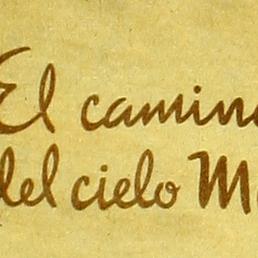 El camin
del cielo M